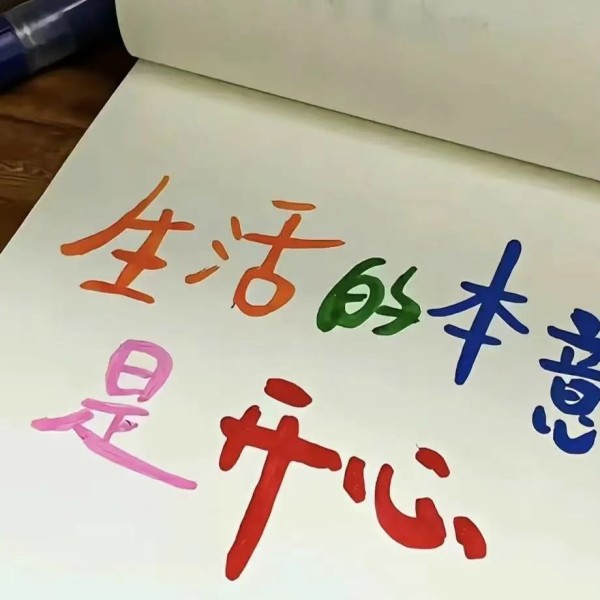 生活的本意
是开心